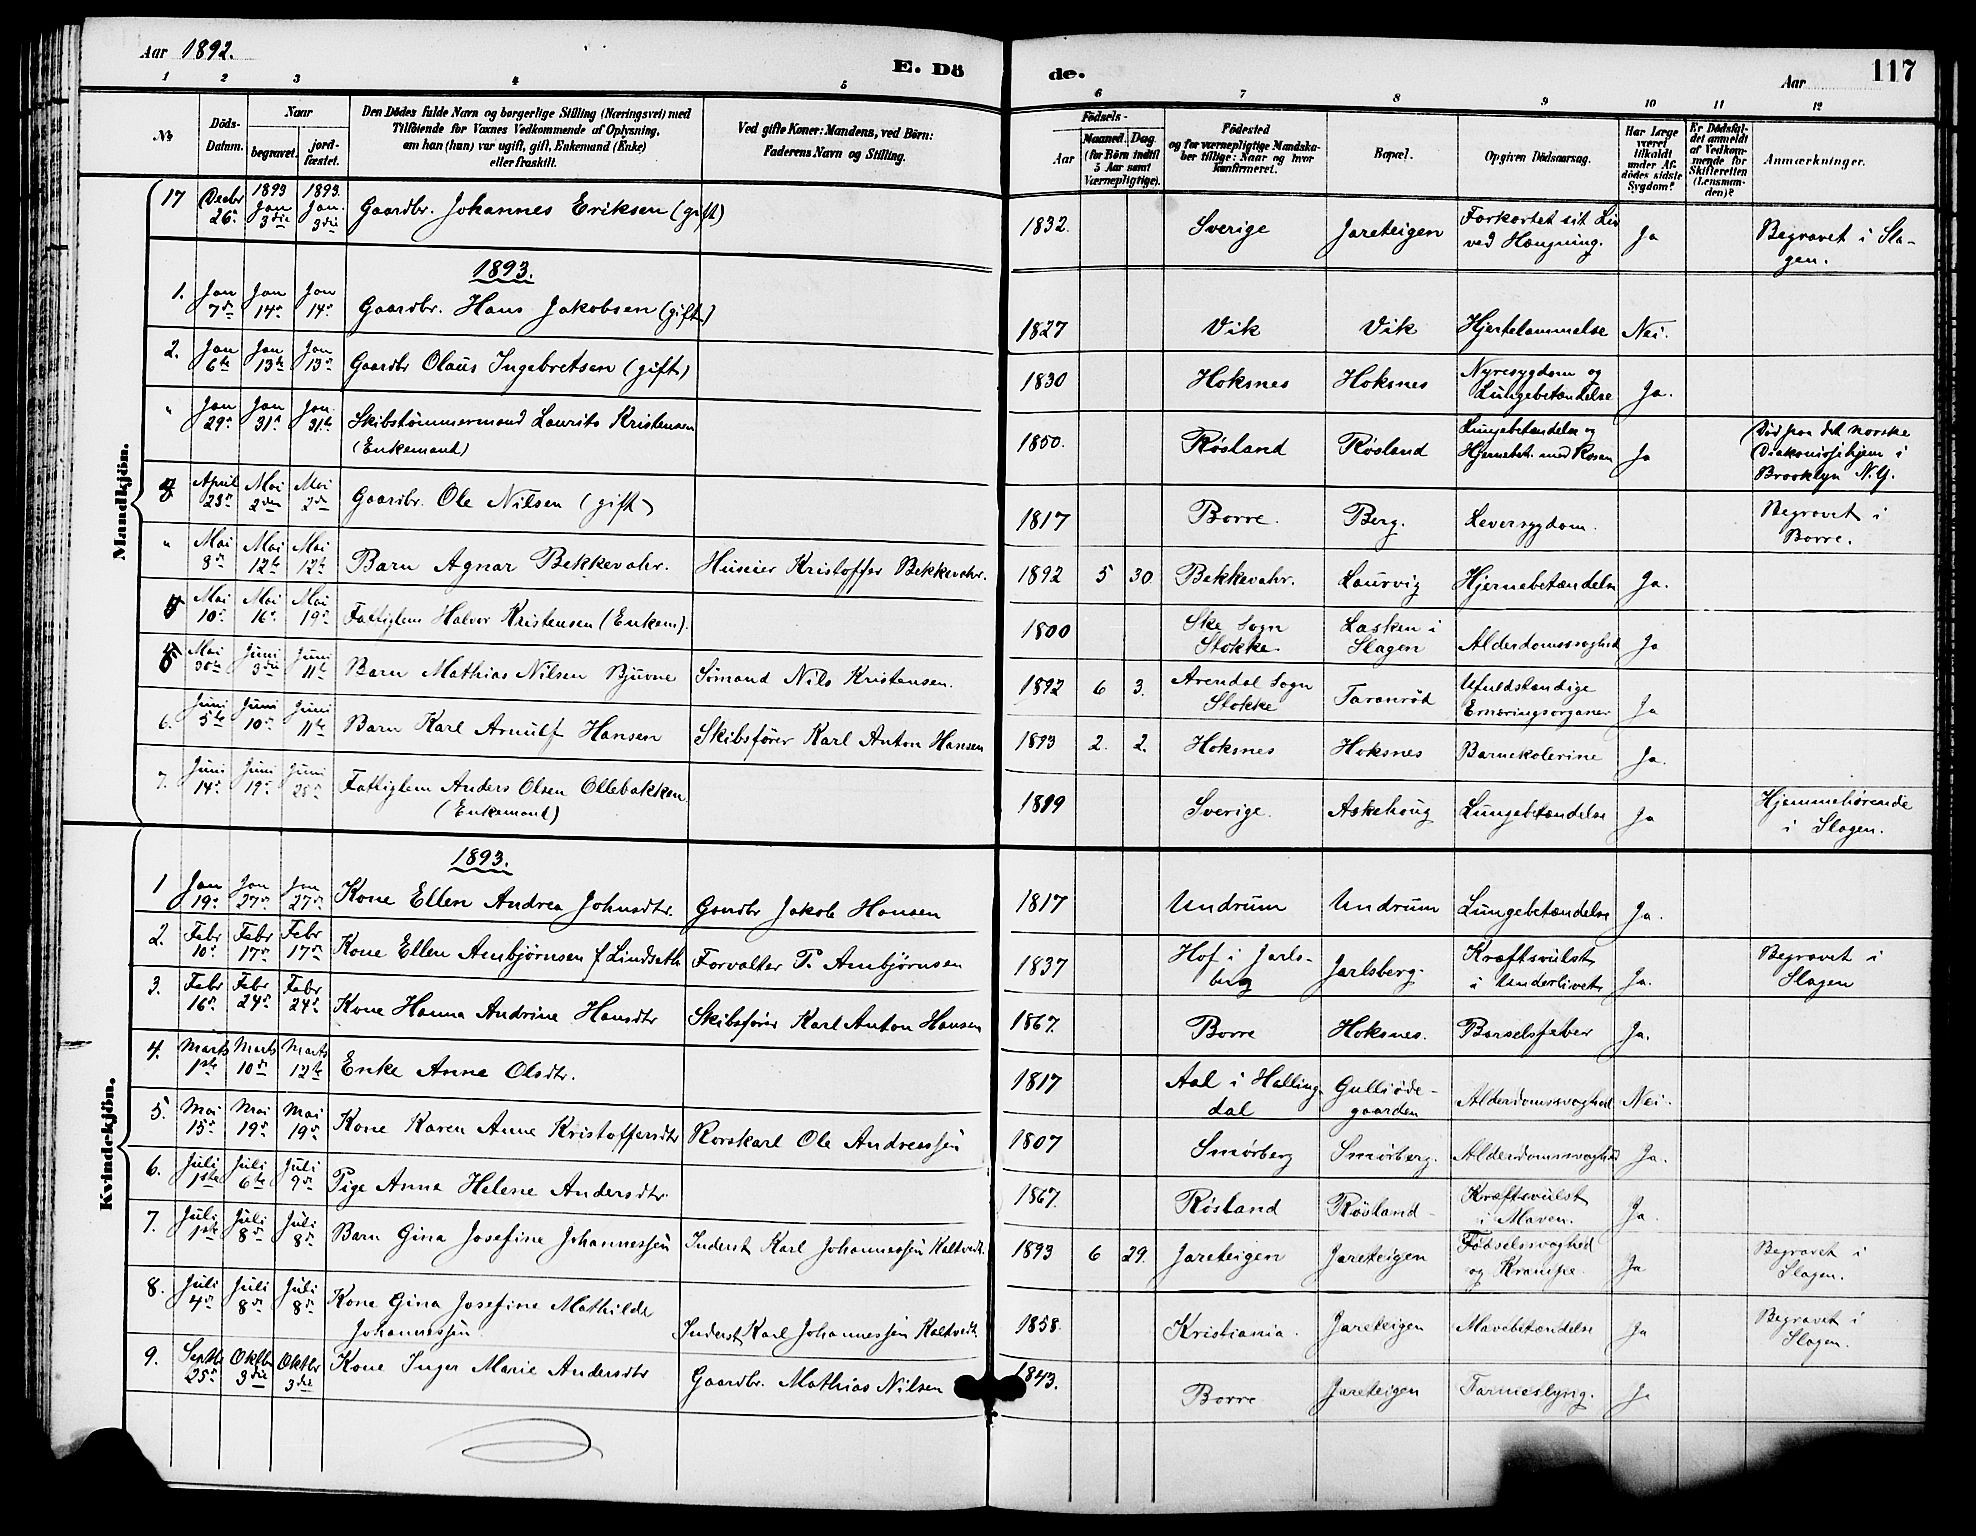 Aar 1892.
E. Dö
de.
Aar
117
1 2 3 4 5 6 7 8 9 10 11 12
No
Döds-
Datum.
Naar
begravet.
jord-
fæstet.
Den Dödes fulde Navn og borgerlige Stilling (Næringsvei) med
Tilföiende for Voxnes Vedkommende af Oplysning,
om han (hun) var ugift, gift, Enkemand (Enke)
eller fraskilt.
Ved gifte Koner: Mandens, ved Börn:
Faderens Navn og Stilling.
Födsels-
Aar
Maaned. Dag.
(for Börn indtil
5 Aar samt
Værnepligtige).
Födested
og for værnepligtige Mandska-
ber tillige: Naar og hvor
konfirmeret.
Bopæl.
Opgiven Dödsaarsag.
Har Læge
været
tilkaldt
under Af-
dödes sidste
Sygdom?
Er Dödsfal-
det anmeldt
af Vedkom-
mende for
Skifteretten
(Lensman-
den)?
Anmærkninger.
Mandkjön.
17 Decbr 26. 1893 Jan 3die 1893. Jan. 3die Gaardbr. Johannes Eriksen (gift) 1832. Sverige Jareteigen Forkortet sit Liv
ved Hængning. Ja Begravet i Sla-
gen.
1893.
1. Jan 7de Jan 14de Jan 14de Gaardbr. Hans Jakobsen (gift) 1827 Vik Vik Hjertelammelse Nei.
2. Jan 6te Jan 13te Jan 13de Gaardbr Olaus Ingebretsen (gift) 1830 Hoksnes Hoksnes Nyresygdom og
Lungebetændelse Ja.
" Jan 29de Jan 31te Jan. 31te Skibstømmermand Laurits Kristensen
(Enkemand) 1850. Røsland Røsland Lungebetændelse og
Hjernebet. med Rosen Ja Død paa det norske
Diakonissehjem i
Brooklyn N.Y.
3 April 28de Mai 2den Mai 2den Gaardbr. Ole Nilsen (gift) 1817 Borre. Berg. Leversygdom. Begravet i
Borre.
" Mai 8de Mai 12te Mai 12te Barn Agnar Bekkevahr. Huseier Kristoffer Bekkevahr. 1892 5 30. Bekkevahr. Laurvig Hjernebetændelse Ja.
4 Mai 10de Mai 16de Mai 19de Fattiglem Halvor Kristensen (Enkem). 1800 Ske Sogn
Stokke. Lasken i
Slagen Alderdomssvaghed Ja
5 Mai 30te Juni 3die Juni 11te Barn Mathias Nilsen Bjuvne Sømand Nils Kristensen. 1892 6 3. Arendal Sogn
Stokke Taranrød Ufuldstændige
Ernæringsorganer Ja
6. Juni 5te Juni 10de Juni 11te Barn Karl Arnulf Hansen Skibsfører Karl Anton Hansen 1893 2. 2. Hoksnes Hoksnes Barnekolerine Ja.
7. Juni 14de Juni 19de Juni 25de Fattiglem Anders Olsen Ollebakken
(Enkemand) 1819 Sverige. Askehoug Lungebetændelse Ja Hjemmehørende
i Slagen.
Kvindekjön.
1893.
1 Jan 19de Jan 27de Jan 27de Kone Ellen Andrea Johnsdtr. Gaardbr Jakob Hansen 1817 Undrum Undrum Lungebetændelse Ja.
2. Febr 10de Febr 17de Febr 17de Kone Ellen Arnbjørnsen f Lindseth Forvalter P. Arnbjørnsen 1837 Hof i Jarls-
berg Jarlsberg. Kræftsvulst
i Underlivet Ja. Begravet i
Slagen
3. Febr 16de Febr 24de Febr 24de Kone Hanna Andrine Hansdtr Skibsfører Karl Anton Hansen 1867. Borre Hoksnes. Barselsfeber Ja.
4. Marts 1ste Marts 10de Marts 12te Enke Anne Olsdtr. 1817 Aal i Halling
dal Gulliøde-
gaarden Alderdomssvaghed Nei.
5. Mai 15de Mai 19de Mai 19de Kone Karen Anne Kristoffersdtr Rorskarl Ole Andreassen 1807 Smørberg Smørberg. Alderdomssvaghed Ja.
6. Juli 1ste Juli 6te Juli 9de Pige Anna Helene Andersdtr. 1867. Røsland Røsland Kræftsvulst
i Maven. Ja.
7. Juli 1ste Juli 8de Juli 8de Barn Gina Josefine Johannessen Inderst Karl Johannessen Kaltvedt. 1893 6 29. Jareteigen Jareteigen Fødselssvaghed
og Krampe. Ja Begravet i
Slagen.
8. Juli 4de Juli 8de Juli 8de Kone Gina Josefine Mathilde
Johannessen Inderst Karl Johannessen Kaltvedt. 1858. Kristiania. Jareteigen Mavebetændelse Ja Begravet i
Slagen.
9. Septbr 25de Oktbr 3die Oktbr 3die Kone Inger Marie Andersdtr Gaardbr. Mathias Nilsen 1843. Borre Jareteigen Tarmeslyng. Ja